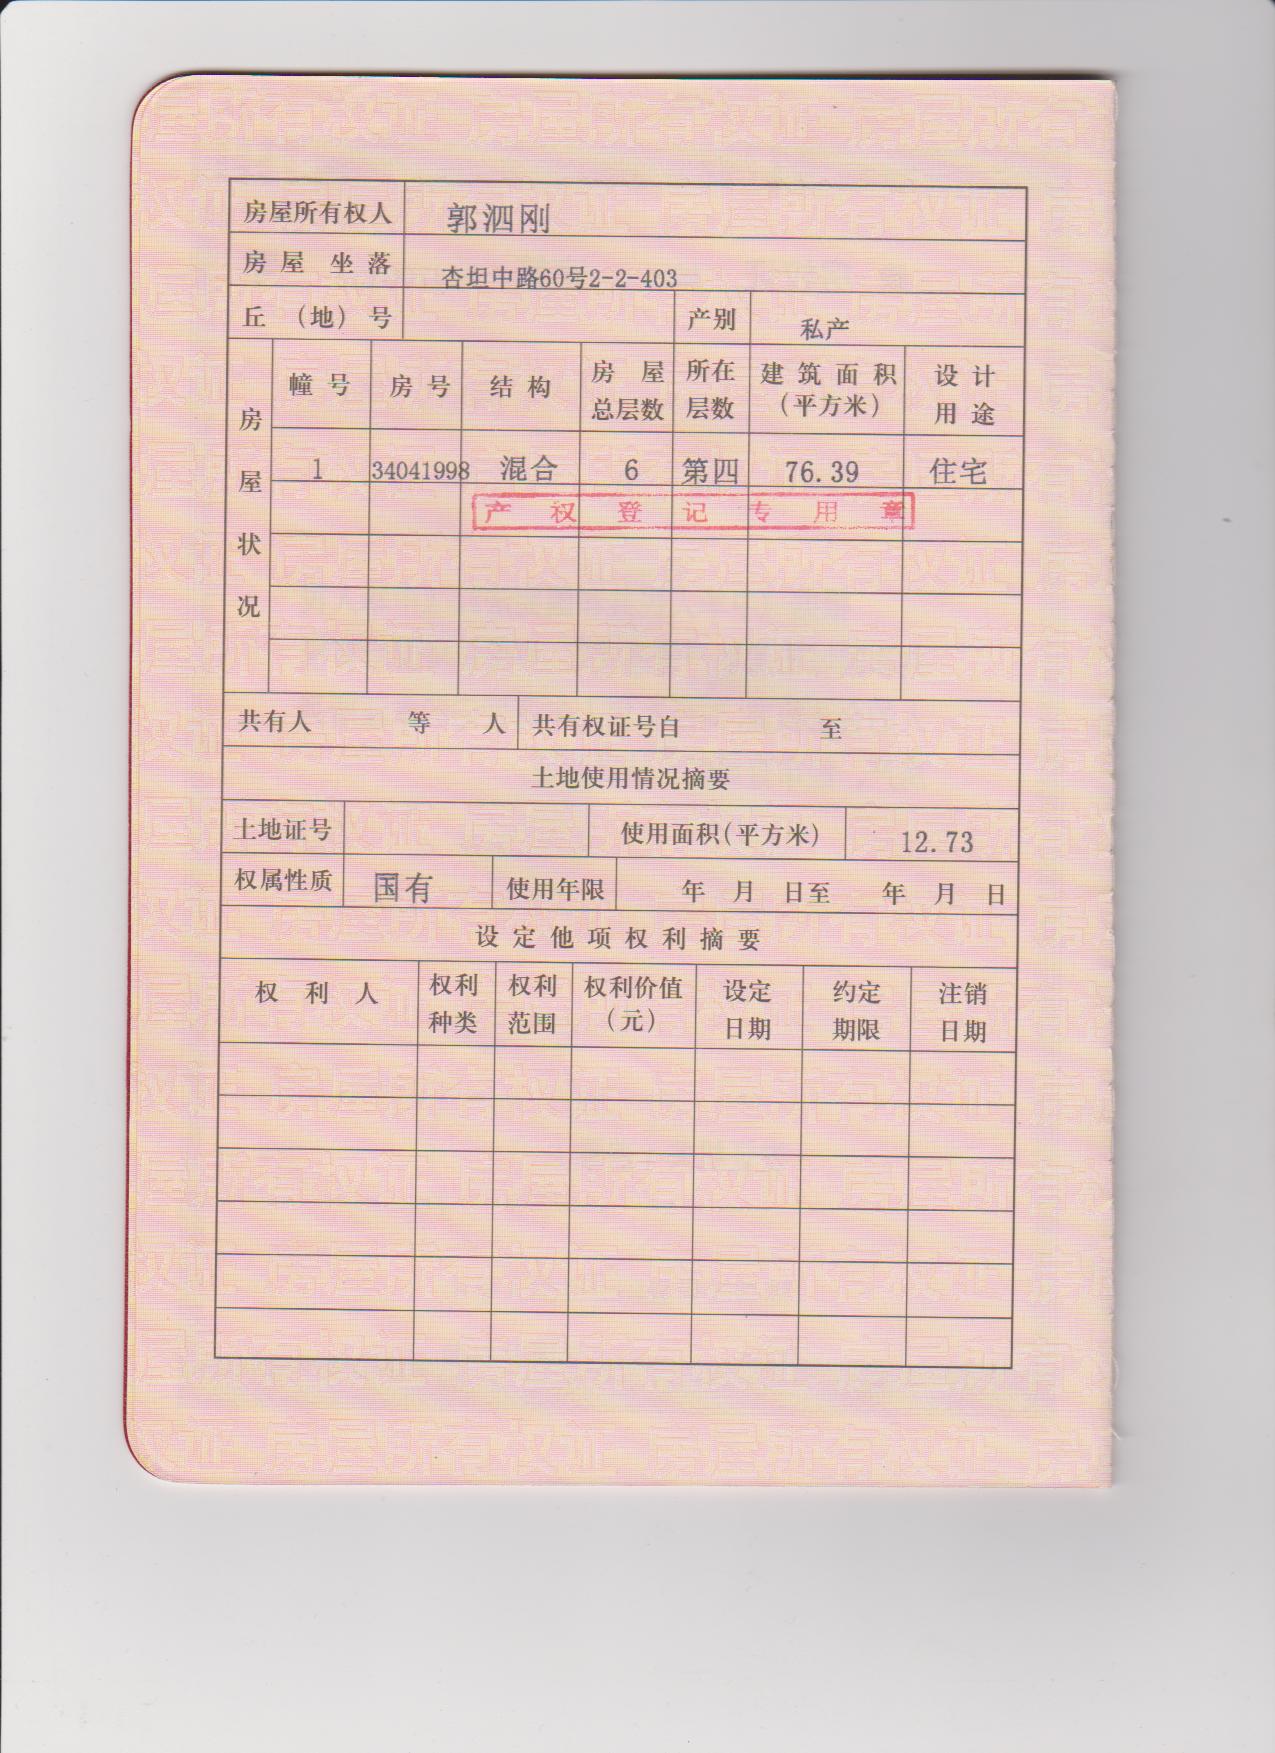 房屋所有权人 郭泗刚
房屋坐落 杏坦中路60号2-2-403
丘（地）号 产别 私产
房屋状况
幢号 房号 结构 房屋总层数 所在层数 建筑面积（平方米） 设计用途
1 34041998 混合 6 第四 76.39 住宅
产权登记专用章
共有人 等 人 共有权证号自 至
土地使用情况摘要
土地证号 使用面积(平方米) 12.73
权属性质 国有 使用年限 年 月 日至 年 月 日
设定他项权利摘要
权利人 权利种类 权利范围 权利价值（元） 设定日期 约定期限 注销日期